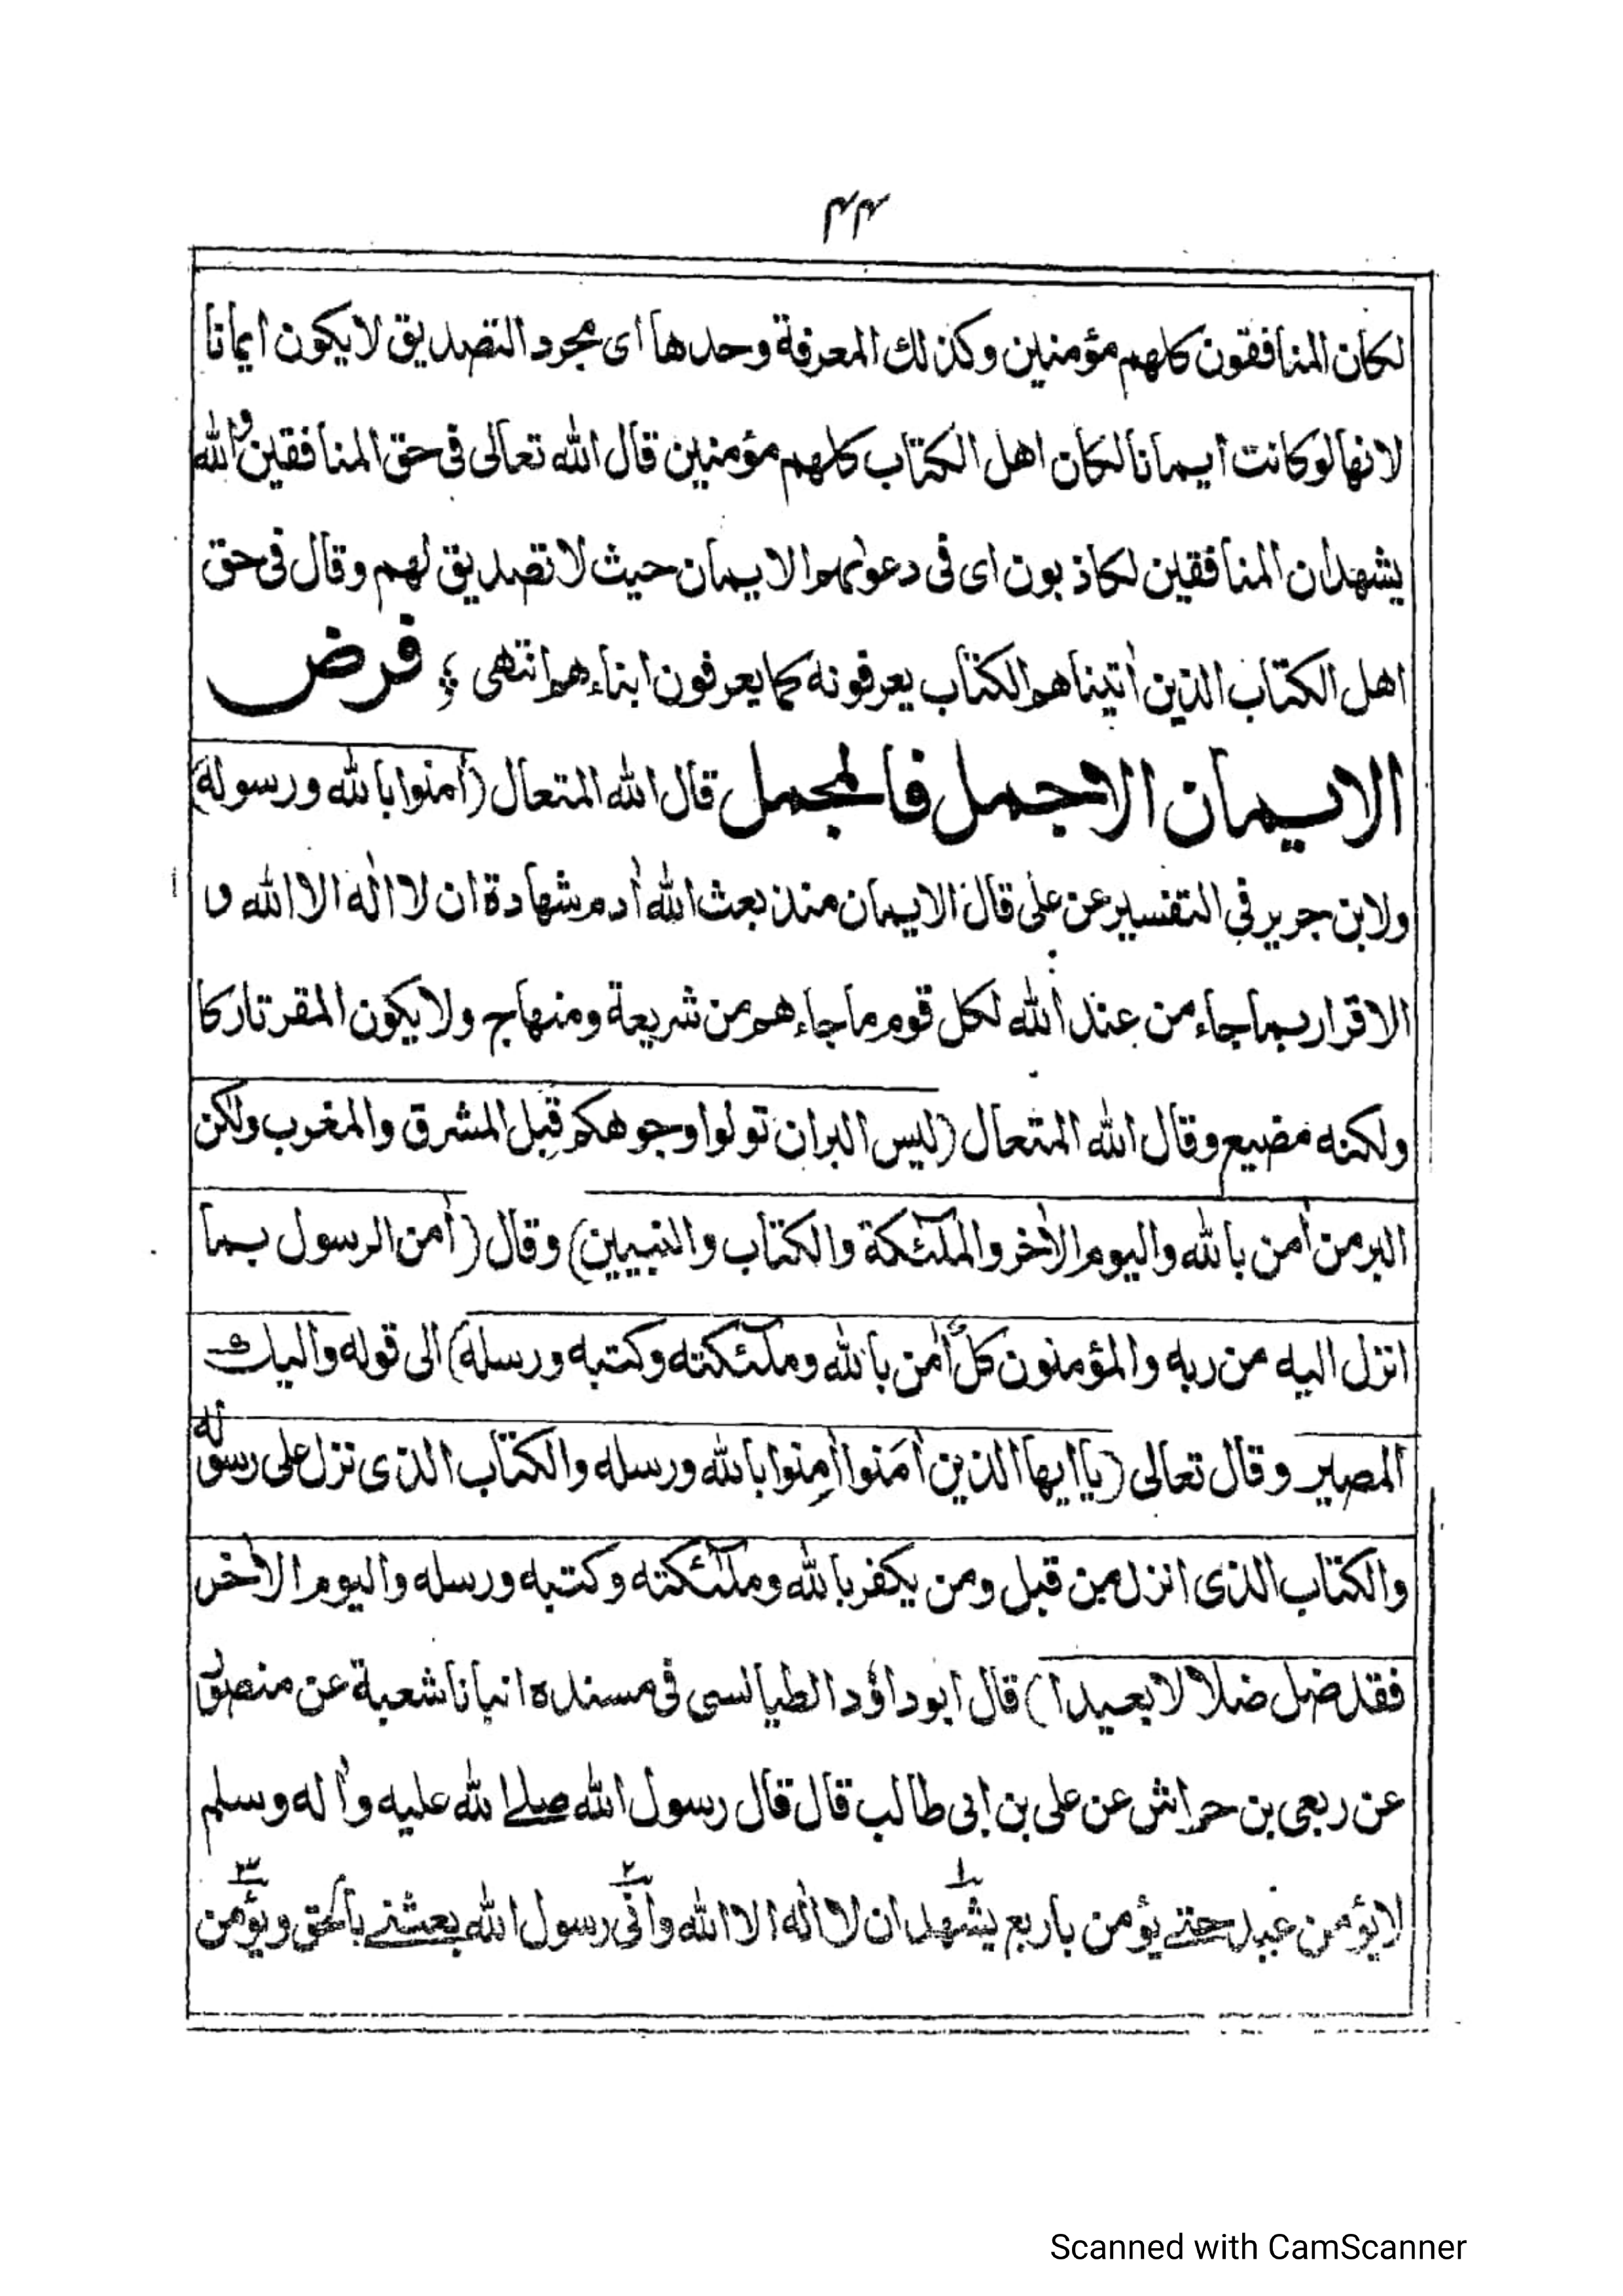 ٤٤
لكان المنافقون كلهم مؤمنين وكذلك المعرفة وحدها اى مجرد التصديق لا يكون ايمانا
لانها لو كانت ايمانا لكان اهل الكتاب كلهم مؤمنين قال الله تعالى فى حق المنافقين والله
يشهد ان المنافقين لكاذبون اى فى دعوٰهم الايمان حيث لا تصديق لهم وقال فى حق
اهل الكتاب الذين اٰتيناهم الكتاب يعرفونه كما يعرفون ابناءهم انتهى ؛ فرض
الايمان الاجمل فالمجمل قال الله المتعال (اٰمنوا بالله ورسوله)
ولابن جرير فى التفسير عن على قال الايمان منذ بعث الله اٰدم شهادة ان لا الٰه الا الله و
الاقرار بما جاء من عند الله لكل قوم ما جاءهم من شريعة ومنهاج ولا يكون المقر تاركا
ولكنه مضيع وقال الله المتعال (ليس البر ان تولوا وجوهكم قِبل المشرق والمغرب ولٰكن
البر من اٰمن بالله واليوم الاٰخر والملٰئكة والكتاب والنبيين) وقال (اٰمن الرسول بما
انزل اليه من ربه والمؤمنون كلٌ اٰمن بالله وملٰئكته وكتبه ورسله) الى قوله واليك
المصير وقال تعالى (يا ايها الذين اٰمَنوا اٰمِنوا بالله ورسله والكتاب الذى نزل على رسوله
والكتاب الذى انزل من قبل ومن يكفر بالله وملٰئكته وكتبه ورسله واليوم الاٰخر
فقد ضل ضلالا بعيدا) قال ابو داؤد الطيالسى فى مسنده انبانا شعبة عن منصور
عن ربعى بن حراش عن على بن ابى طالب قال قال رسول الله صلے الله عليه واٰله وسلم
لا يؤمن عبد حتے يؤمن باربع يشهد ان لا الٰه الا الله وانى رسول الله بعثنے بالحق ويؤمن
Scanned with CamScanner